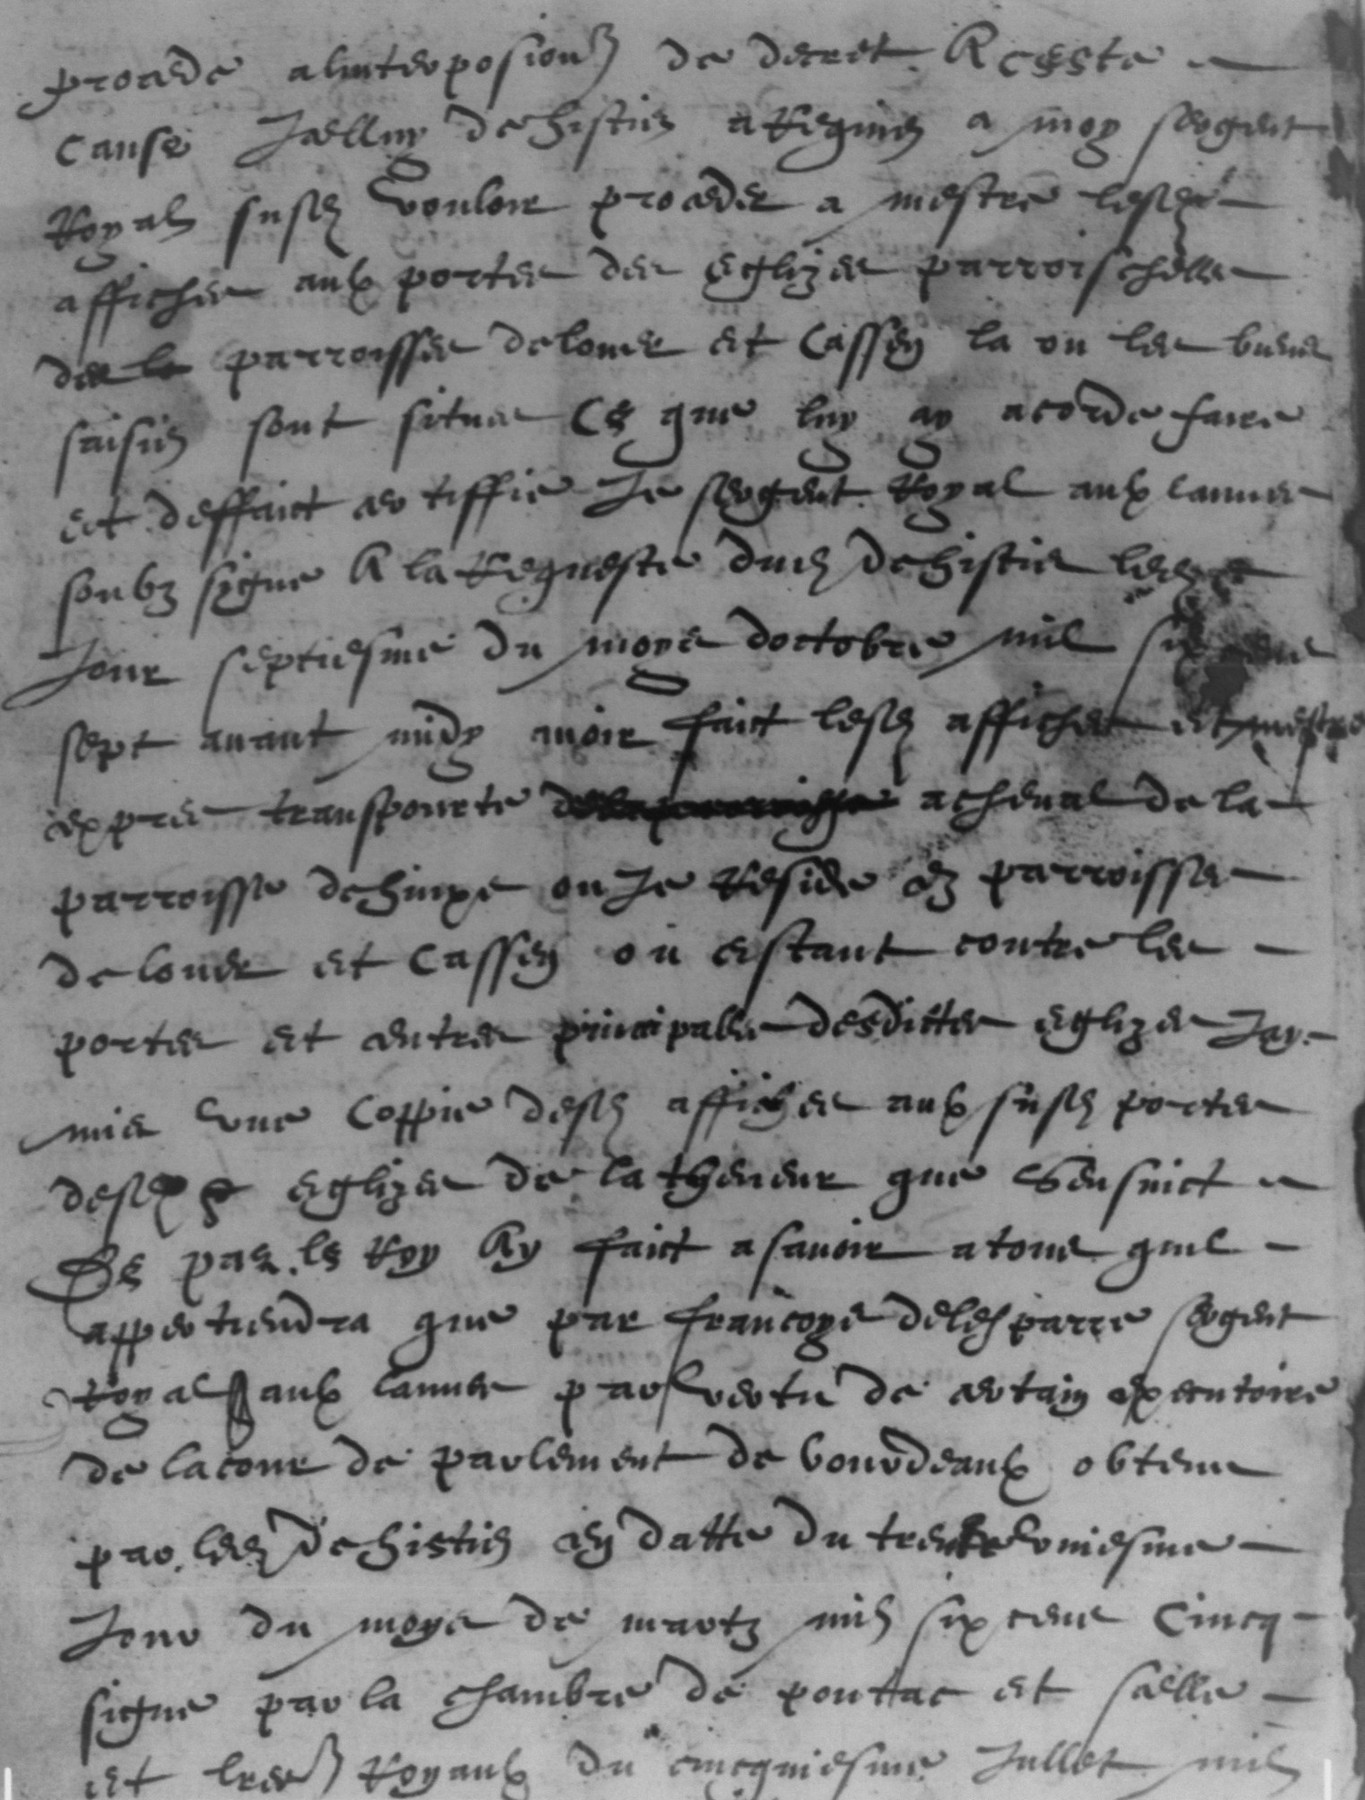 procede alinterposion de decret A ceste
cause Jcelluy dehistin a Requis a moy sergent
Royal susd vouloir proceder a mestre lesd
affiches aux portes des eglizes parroischelles
des parroisses de louer et Cassen la ou les biens
saisis sont situes Ce que luy ay acorde faire
et deffaict certiffie Je sergent Royal aux lannes
soubz signe A la Requeste dud dehistin led
Jour septiesme du moys doctobre mil six cens
sept avant midy avoir faict lesd affiches et mestre
expres transpourte acheval de la
parroisse dehinxe ou Je Reside es parroisses
de louer et Cassen ou estant contre les
portes et entres principalles desdittes eglizes Jay
mis une Coppie desd affiches aux susd portes
desd eglizes de la theneur que Sensuict
De par le Roy Ay faict a savoir a tous quil
appertiendra que par francoys delesparre sergent
Royal aux lannes par vertu de certain executoire
de la cour de parlement de bourdeaux obtenu
par led dehistin en datte du trente uniesme
Jour du moys de martz mil six cens Cincq
signe par la chambre de pontac et selle
et lres Royaux du cincquiesme Jullet mil